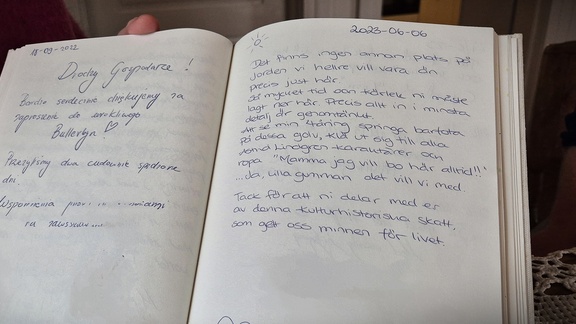 18-09-2022
Drodzy Gospodarze!
Bardzo serdecznie dziękujemy za
zaproszenie do urokliwego
Bullerbyn
Przeżyliśmy dwa cudownie spędzone
dni
Wspomnienia
na zawsze
2023-06-06
Det finns ingen annan plats på
jorden vi hellre vill vara än
precis just här.
Så mycket tid och kärlek ni måste
lagt ner här. Precis allt in i minsta
detalj är genomtänkt.
Att se min 4åring springa barfota
på dessa golv, klä ut sig till alla
Astrid Lindgren karaktärer och
ropa "Mamma jag vill bo här alltid!!"
...Ja, lilla gumman det vill vi med.
Tack för att ni delar med er
av denna kulturhistoriska skatt,
som gett oss minnen för livet.